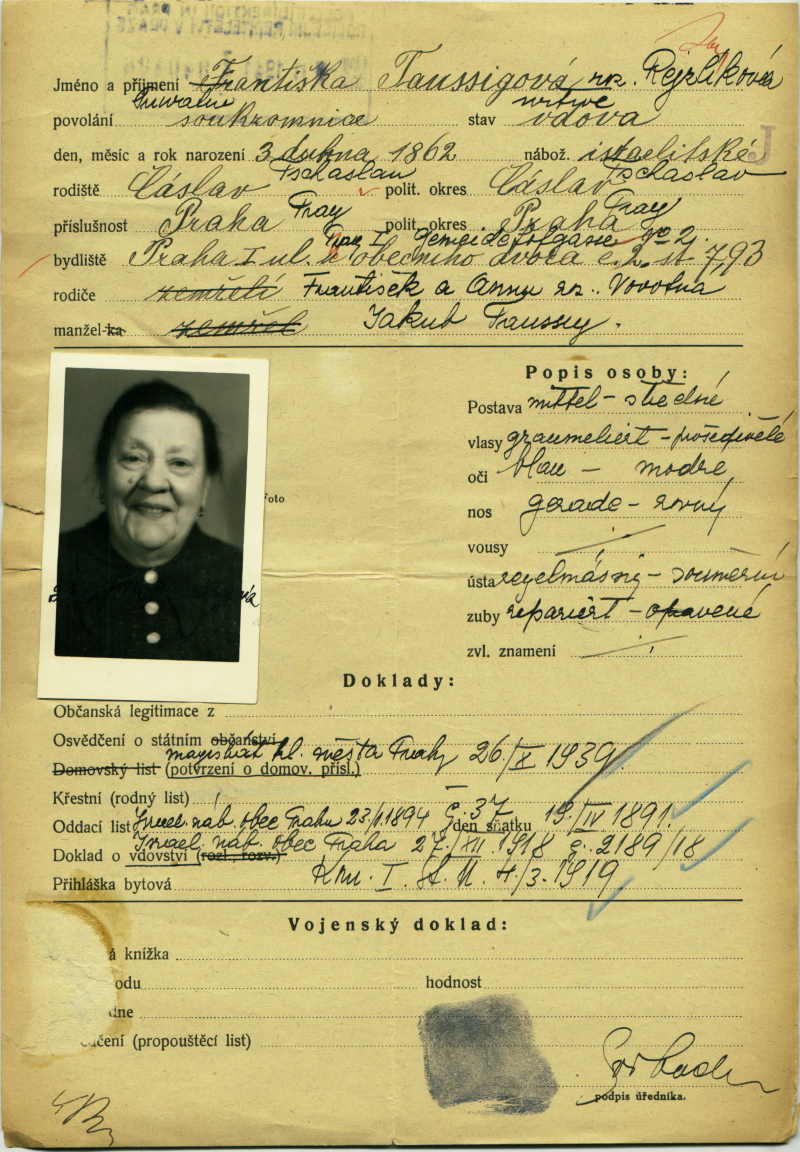 Jméno a příjmení Františka Taussigová roz. Rejzliková
povolání soukromnice stav Witwe vdova
den, měsíc a rok narození 3. dubna 1862 nábož. israelitské
J
rodiště Čáslav Tschaslau polit. okres Čáslav Tschaslav
příslušnost Praha Prag polit. okres Praha Prag
Prag I. Gemeindehofgasse No 2.
bydliště Praha I ul. obecního dvora č. 2. st 7,93
rodiče zemřelí František a Anna roz. Novotná
manžel-ka zemřel Jakub Taussig.
Popis osoby:
Postava mittel - středné
vlasy graumeliert - prošedivělé
oči blau - modré
nos gerade - rovný
vousy
ústa regelmässig - souměrní
zuby repariert - opravené
zvl. znamení
Foto
Doklady:
Občanská legitimace z
Osvědčení o státním občanství
magistrát hl. města Prahy 26./X 1939.
Domovský list (potvrzení o domov. přísl.)
Křestní (rodný list)
Oddací list Israel. náb. obec Praha 23/1.1894 č. 37 den sňatku 19./IV 1891.
Doklad o vdovství (rozl., rozv.) Israel. náb. obec Praha 27./XII. 1918 č. 2189/18
Přihláška bytová I. 4./3. 1919.
Vojenský doklad:
á knížka
odu hodnost
dne
dčení (propouštěcí list)
podpis úředníka.